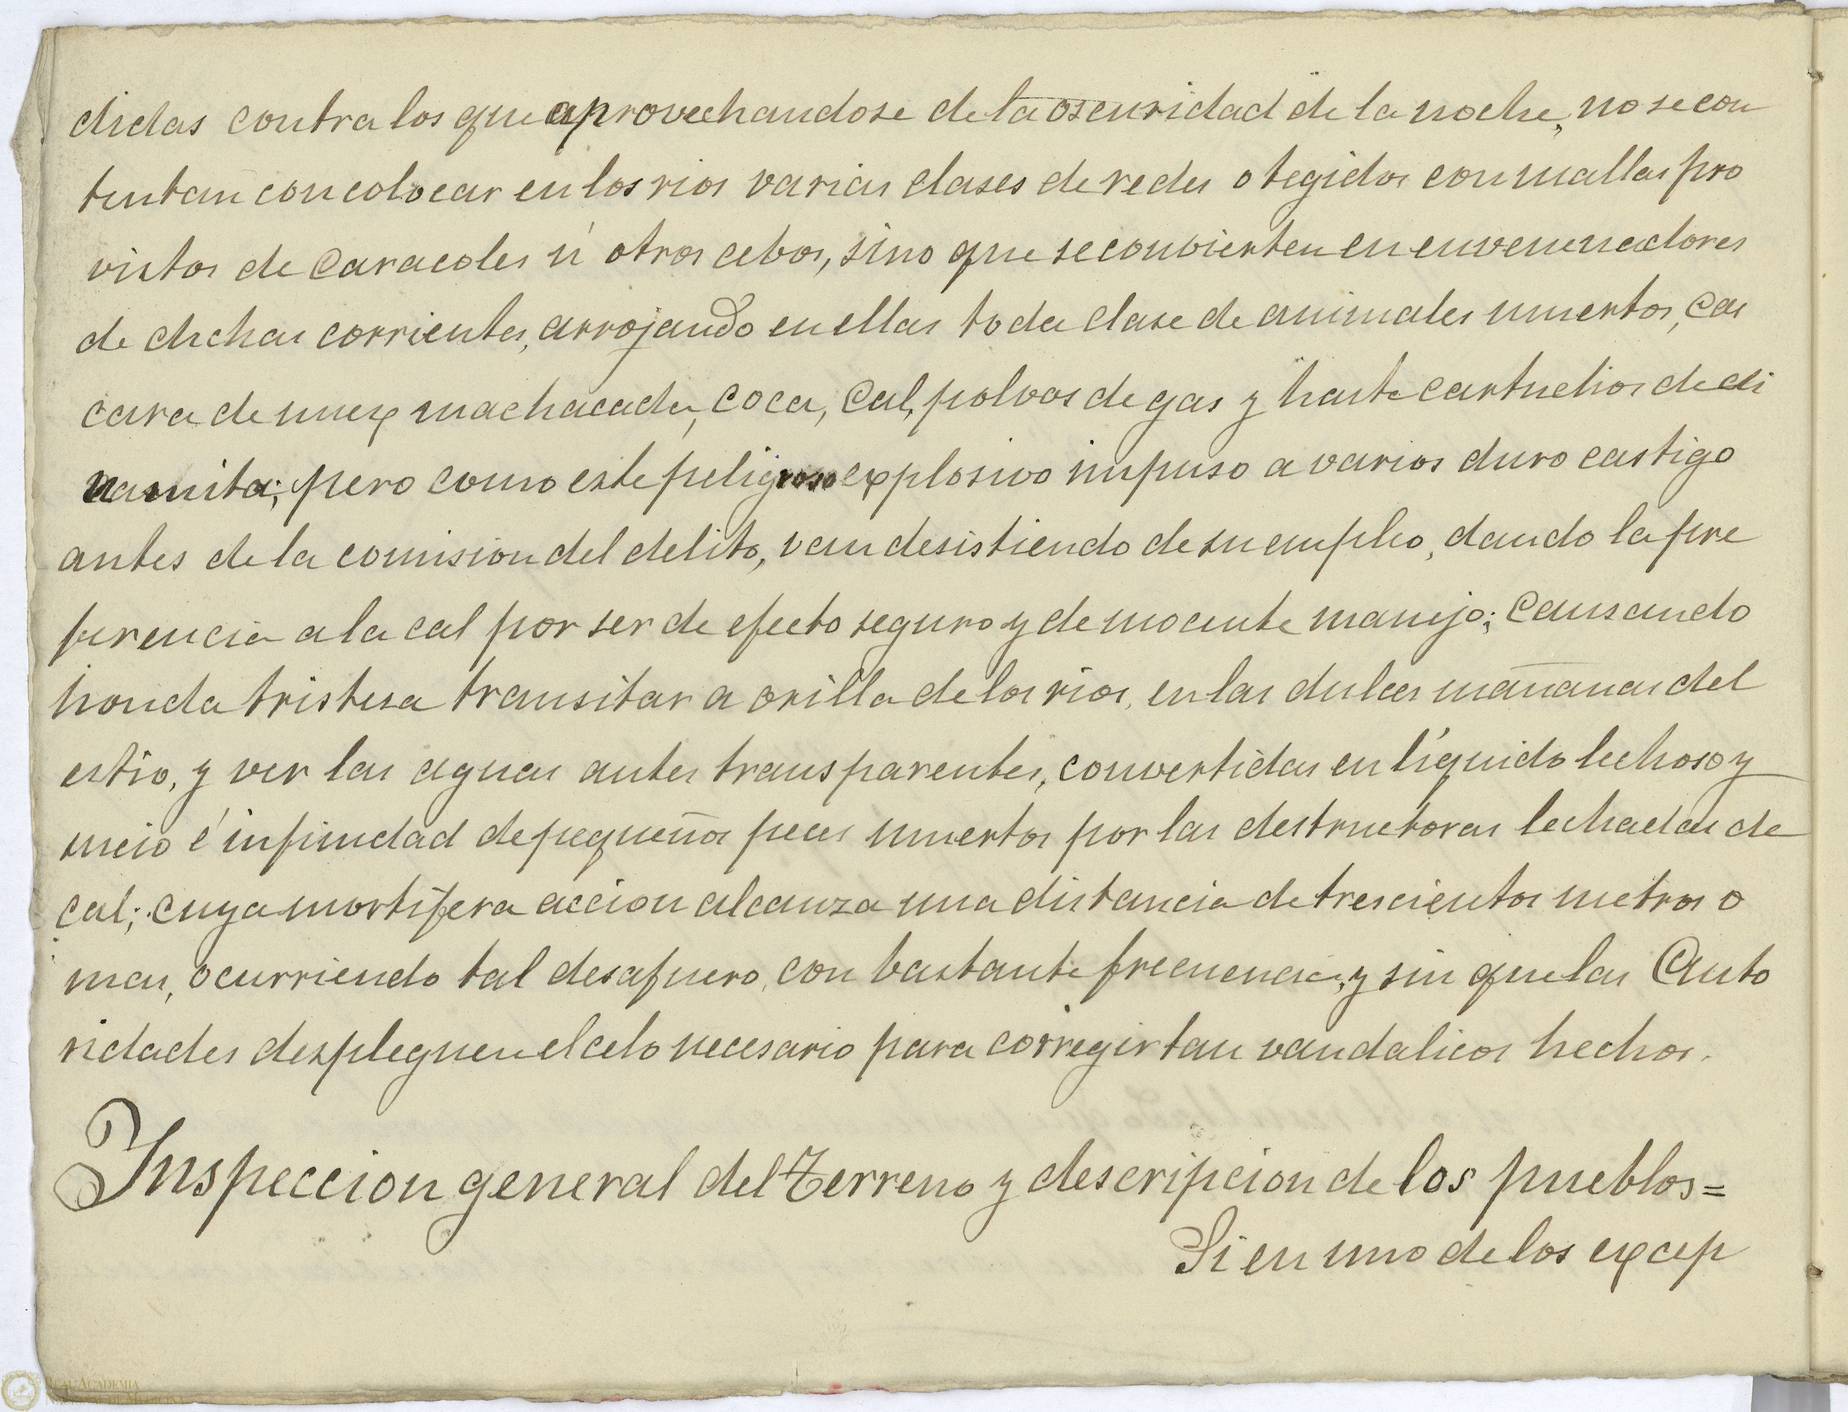 didas contra los que aprovechandose de la oscuridad de la noche, no se con
tentan con colocar en los rios varias clases de redes o tegidos con mallas pro
vistos de caracoles ú otros cebos, sino que se convierten en envenenadores
de dichas corrientes, arrojando en ellas toda clase de animales muertos, cas
cara de nuez machacada, coca, cal, polvos de gas y hasta cartuchos de di
namita; pero como este peligroso explosivo impuso a varios duro castigo
antes de la comision del delito, van desistiendo de su empleo, dando la pre
ferencia a la cal por ser de efecto seguro y de inocente manejo; causando
honda tristesa transitar a orilla de los rios, en las dulces mañanas del
estio, y ver las aguas antes transparentes, convertidas en líquido lechoso y
sucio é infinidad de pequeños peces muertos por las destructoras lechadas de
cal; cuya mortifera accion alcanza una distancia de trescientos metros o
mas, ocurriendo tal desafuero, con bastante frecuencia, y sin que las Auto
ridades desplieguen el celo necesario para corregir tan vandalicos hechos.
Inspeccion general del Terreno y descripcion de los pueblos=
Si en uno de los excep
REAL ACADEMIA
NACIONAL DE MEDICINA